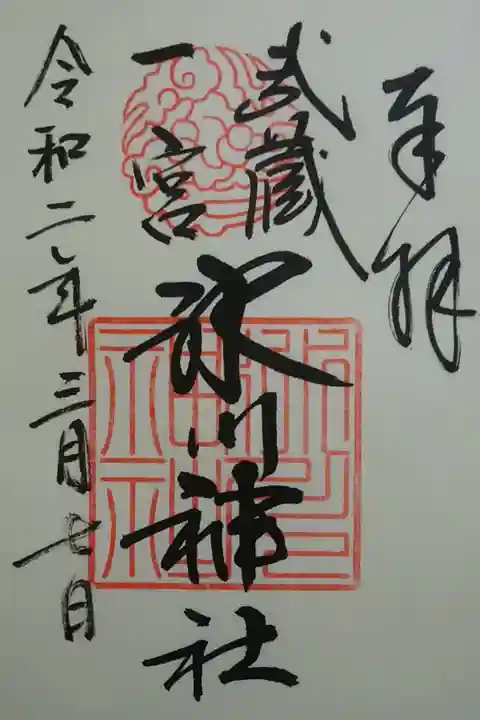 奉拝
武蔵
一宮
氷川神社
令和二年三月七日
氷川
神社